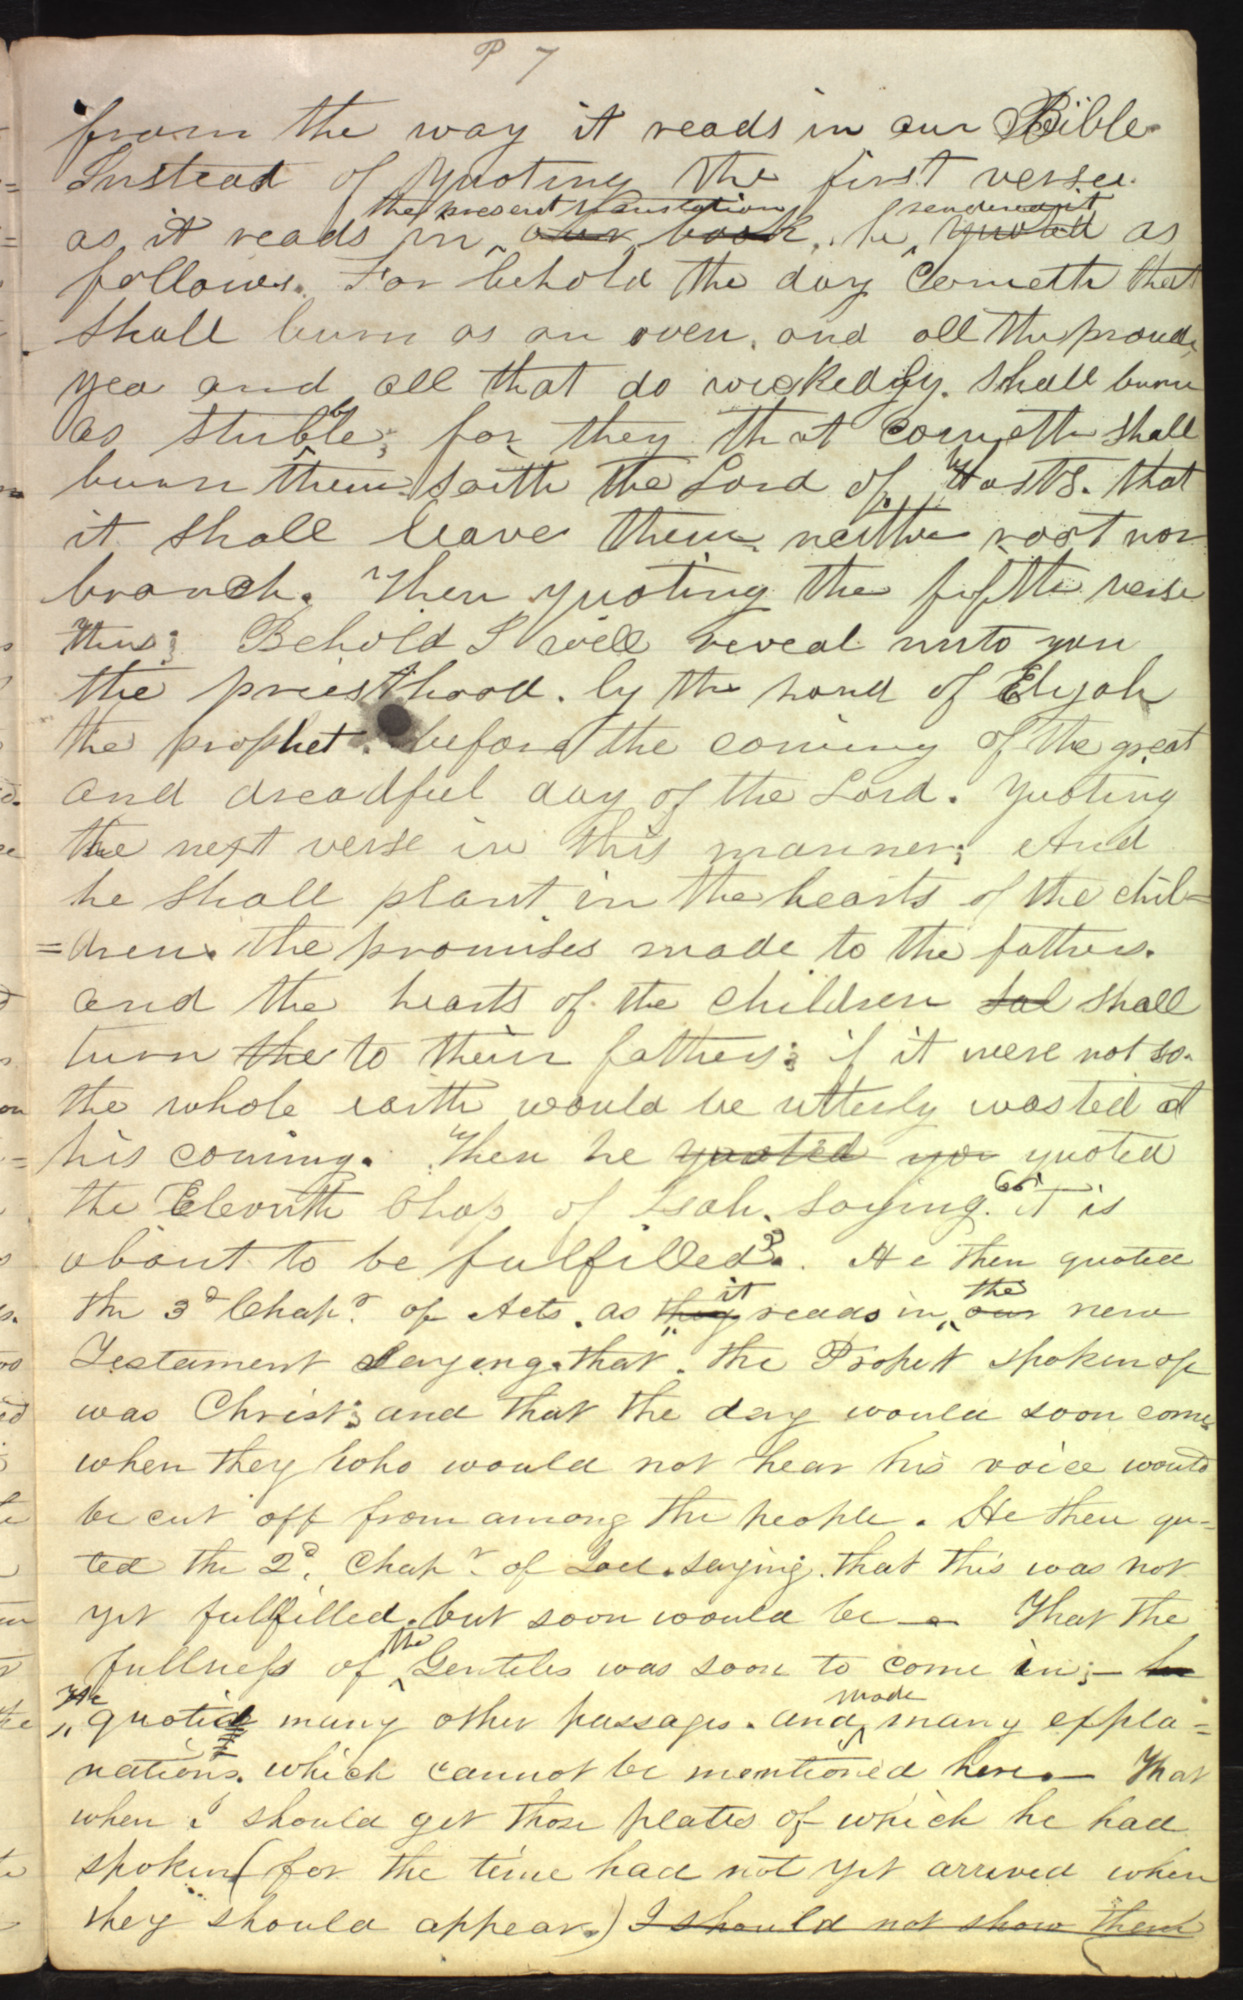 P 7
from the way it reads in our Bible
Instead of quoting the first verse
the present translation, rendered it
as it reads in our book, he quoted as
follows. For behold the day cometh that
shall burn as an oven, and all the proud,
yea and all that do wickedly. shall burn
as stubble; for they that cometh shall
burn them saith the Lord of Hosts. that
it shall leave them neither root nor
branch. Then quoting the fifth verse
thus; Behold I will reveal unto you
the priesthood. by the hand of Elijah
the prophet. before the coming of the great
and dreadful day of the Lord. quoting
the next verse in this manner; And
he shall plant in the hearts of the chil=
=dren. the promises made to the fathers.
and the hearts of the children sal shall
turn the to their fathers; if it were not so.
the whole earth would be utterly wasted at
his coming. Then he quoted you quoted
the Eleventh Chap of Isah. saying. "it is
about to be fulfilled". He then quoted
it the
the 3d Chapr of Acts. as they reads in our new
Testament saying. that. the Prophet spoken of
was Christ; and that the day would soon come
when they who would not hear his voice would
be cut off from among the people. He then quo=
ted the 2d. Chapr of Joel. saying. that this was not
yet fulfilled. but soon would be —. That the
the
fullness of Gentiles was soon to come in; — he
He made
quoted many other passages. and many expla=
nations. which cannot be mentioned here. — That
when I should get those plates of which he had
spoken (for the time had not yet arrived when
they should appear.) I should not show them